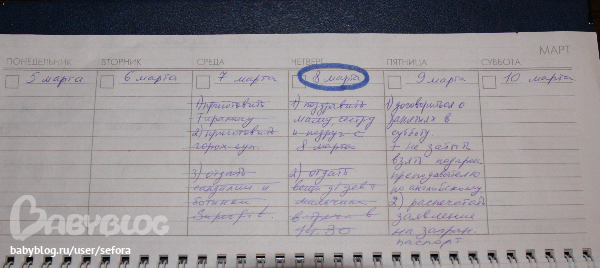 МАРТ
ПОНЕДЕЛЬНИК ВТОРНИК СРЕДА ЧЕТВЕРГ ПЯТНИЦА СУББОТА
5 марта 6 марта 7 марта 8 марта 9 марта 10 марта
1) приготовить
2) приготовить
горох. суп.
3) отдать
сандалии и
ботинки
1) поздравить
маму сестру
и подруг с
8 марта
2) отдать
вещи
мальчика
встреча в
14.30
1) договориться о
занятиях в
субботу.
+ не забыть
взять подарок
преподавателю
по английскому
2) распечатать
заявление
на загран.
паспорт
BABYBLOG
babyblog.ru/user/sefora